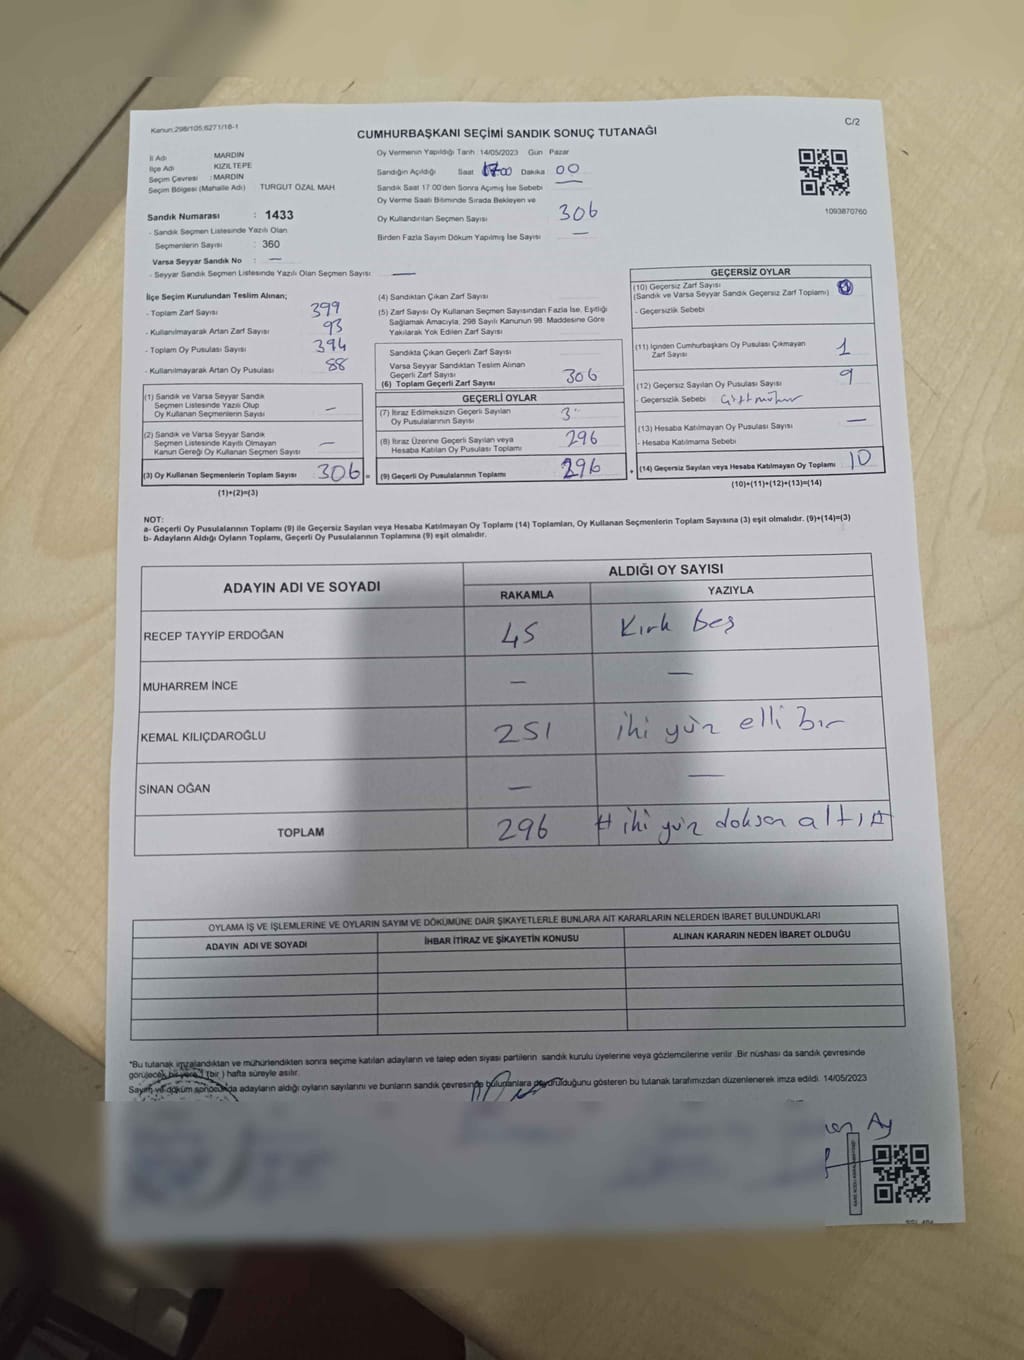 Kanun:298/105;6271/16-1
C/2
CUMHURBAŞKANI SEÇİMİ SANDIK SONUÇ TUTANAĞI
İl Adı MARDİN
İlçe Adı KIZILTEPE
Seçim Çevresi : MARDİN
Seçim Bölgesi (Mahalle Adı) TURGUT ÖZAL MAH
Sandık Numarası : 1433
- Sandık Seçmen Listesinde Yazılı Olan
Seçmenlerin Sayısı : 360
Varsa Seyyar Sandık No : —
- Seyyar Sandık Seçmen Listesinde Yazılı Olan Seçmen Sayısı : —
Oy Vermenin Yapıldığı Tarih 14/05/2023 Gün Pazar
Sandığın Açıldığı Saat 17:00 Dakika 00
Sandık Saat 17.00'den Sonra Açımış İse Sebebi
Oy Verme Saati Bitiminde Sırada Bekleyen ve
Oy Kullandırılan Seçmen Sayısı 306
Birden Fazla Sayım Döküm Yapılmış İse Sayısı —
1093870760
İlçe Seçim Kurulundan Teslim Alınan;
- Toplam Zarf Sayısı 399
- Kullanılmayarak Artan Zarf Sayısı 93
- Toplam Oy Pusulası Sayısı 394
- Kullanılmayarak Artan Oy Pusulası 88
(1) Sandık ve Varsa Seyyar Sandık
Seçmen Listesinde Yazılı Olup
Oy Kullanan Seçmenlerin Sayısı —
(2) Sandık ve Varsa Seyyar Sandık
Seçmen Listesinde Kayıtlı Olmayan
Kanun Gereği Oy Kullanan Seçmen Sayısı —
(3) Oy Kullanan Seçmenlerin Toplam Sayısı 306 =
(1)+(2)=(3)
(4) Sandıktan Çıkan Zarf Sayısı
(5) Zarf Sayısı Oy Kullanan Seçmen Sayısından Fazla İse, Eşitliği
Sağlamak Amacıyla; 298 Sayılı Kanunun 98. Maddesine Göre
Yakılarak Yok Edilen Zarf Sayısı
Sandıkta Çıkan Geçerli Zarf Sayısı
Varsa Seyyar Sandıktan Teslim Alınan
Geçerli Zarf Sayısı
(6) Toplam Geçerli Zarf Sayısı 306
GEÇERLİ OYLAR
(7) İtiraz Edilmeksizin Geçerli Sayılan
Oy Pusulalarının Sayısı
(8) İtiraz Üzerine Geçerli Sayılan veya
Hesaba Katılan Oy Pusulası Toplamı 296
(9) Geçerli Oy Pusulalarının Toplamı 296 +
GEÇERSİZ OYLAR
(10) Geçersiz Zarf Sayısı
(Sandık ve Varsa Seyyar Sandık Geçersiz Zarf Toplamı)
- Geçersizlik Sebebi
(11) İçinden Cumhurbaşkanı Oy Pusulası Çıkmayan
Zarf Sayısı 1
(12) Geçersiz Sayılan Oy Pusulası Sayısı 9
- Geçersizlik Sebebi Çift mühür
(13) Hesaba Katılmayan Oy Pusulası Sayısı —
- Hesaba Katılmama Sebebi
(14) Geçersiz Sayılan veya Hesaba Katılmayan Oy Toplamı 10
(10)+(11)+(12)+(13)=(14)
NOT:
a- Geçerli Oy Pusulalarının Toplamı (9) ile Geçersiz Sayılan veya Hesaba Katılmayan Oy Toplamı (14) Toplamları, Oy Kullanan Seçmenlerin Toplam Sayısına (3) eşit olmalıdır. (9)+(14)=(3)
b- Adayların Aldığı Oyların Toplamı, Geçerli Oy Pusulalarının Toplamına (9) eşit olmalıdır.
ADAYIN ADI VE SOYADI ALDIĞI OY SAYISI
RAKAMLA YAZIYLA
RECEP TAYYİP ERDOĞAN 45 Kırk beş
MUHARREM İNCE — —
KEMAL KILIÇDAROĞLU 251 iki yüz elli bir
SİNAN OĞAN — —
TOPLAM 296 # iki yüz doksan altı #
OYLAMA İŞ VE İŞLEMLERİNE VE OYLARIN SAYIM VE DÖKÜMÜNE DAİR ŞİKAYETLERLE BUNLARA AİT KARARLARIN NELERDEN İBARET BULUNDUKLARI
ADAYIN ADI VE SOYADI İHBAR İTİRAZ VE ŞİKAYETİN KONUSU ALINAN KARARIN NEDEN İBARET OLDUĞU
*Bu tutanak imzalandıktan ve mühürlendikten sonra seçime katılan adayların ve talep eden siyasi partilerin sandık kurulu üyelerine veya gözlemcilerine verilir. Bir nüshası da sandık çevresinde
görülecek bir yere 1 (bir) hafta süreyle asılır.
Sayım ve döküm sonucunda adayların aldığı oyların sayılarını ve bunların sandık çevresinde bulunanlara duyurulduğunu gösteren bu tutanak tarafımızdan düzenlenerek imza edildi. 14/05/2023
Ay